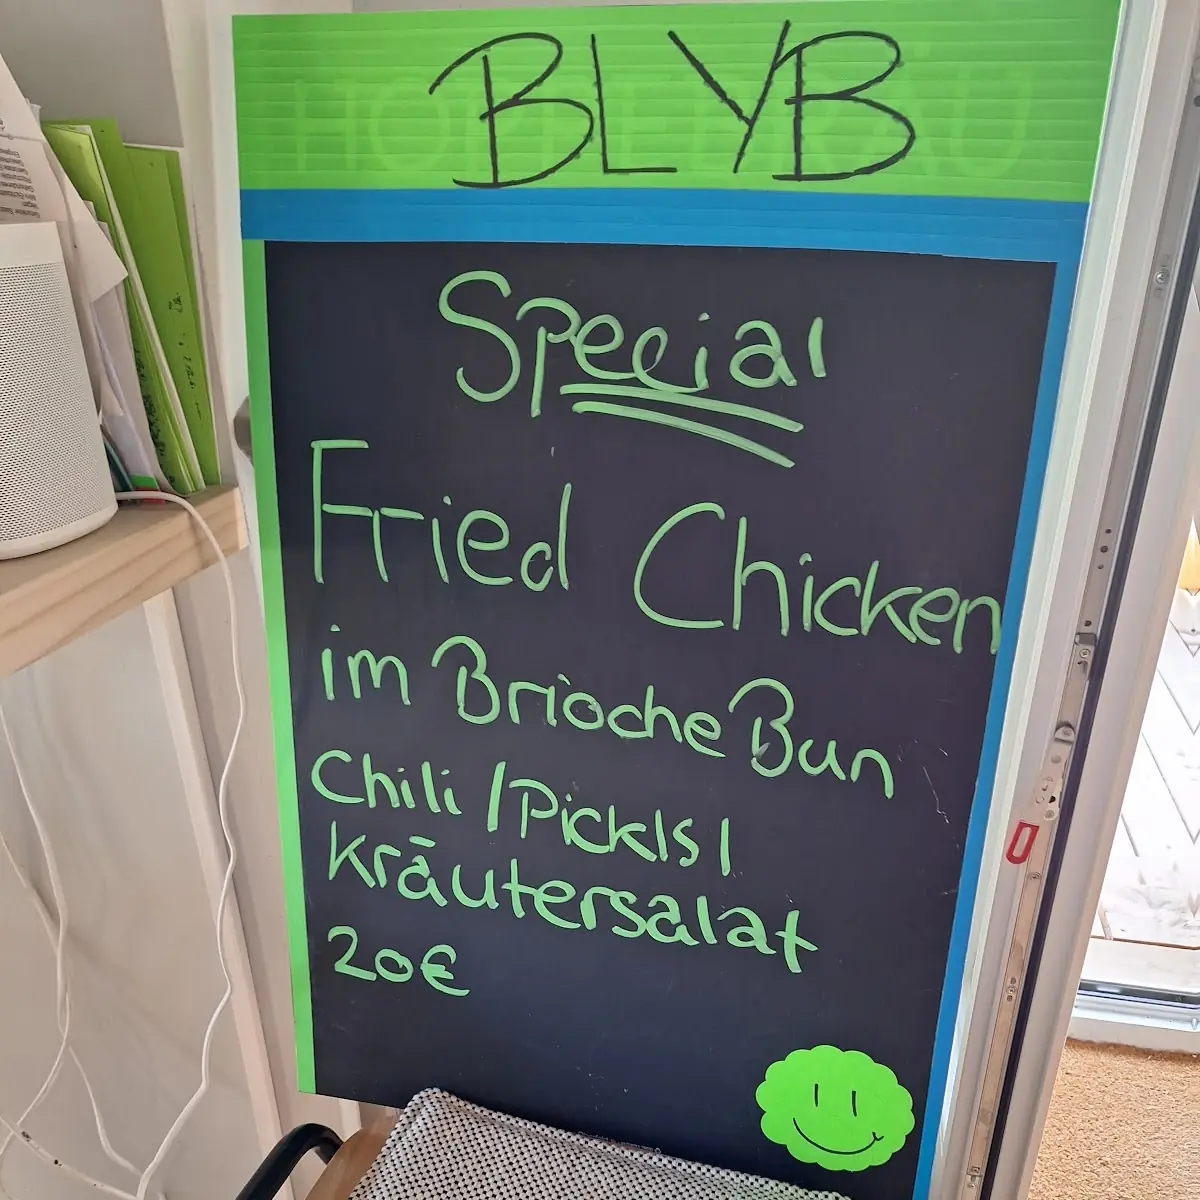 BLYB
Special
Fried Chicken
im Brioche Bun
Chili / Pickls /
Kräutersalat
20€